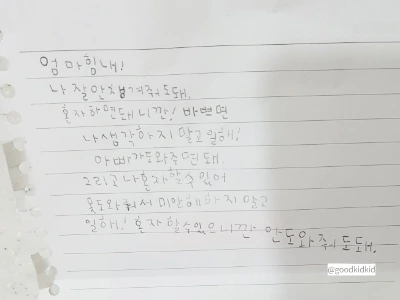 엄마힘내!
나 잘안챙겨줘도돼.
혼자하면돼니깐! 바쁘면
나생각하지말고일해!
아빠가도와주면돼.
그리고나혼자할수있어
못도와줘서미안해하지말고
일해! 혼자할수있으니깐 안도와줘도돼.
@goodkidkid